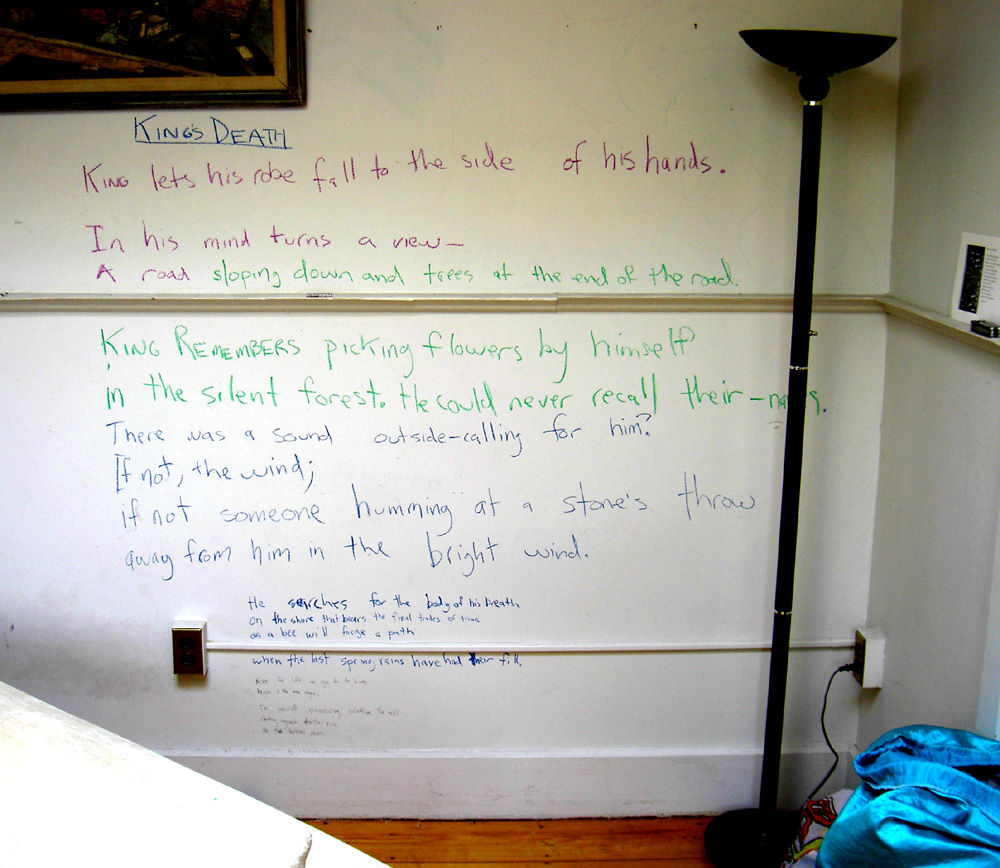 KING'S DEATH
KING lets his robe fall to the side of his hands.
In his mind turns a view—
A road sloping down and trees at the end of the road.
KING REMEMBERS picking flowers by himself
in the silent forest. He could never recall their –
There was a sound outside–calling for him?
If not, the wind;
if not someone humming at a stone's throw
away from him in the bright wind.
He searches for the body of his breath
on the shore that bears the final trades of time
as a bee will forge a path
when the last spring rains have had their fill